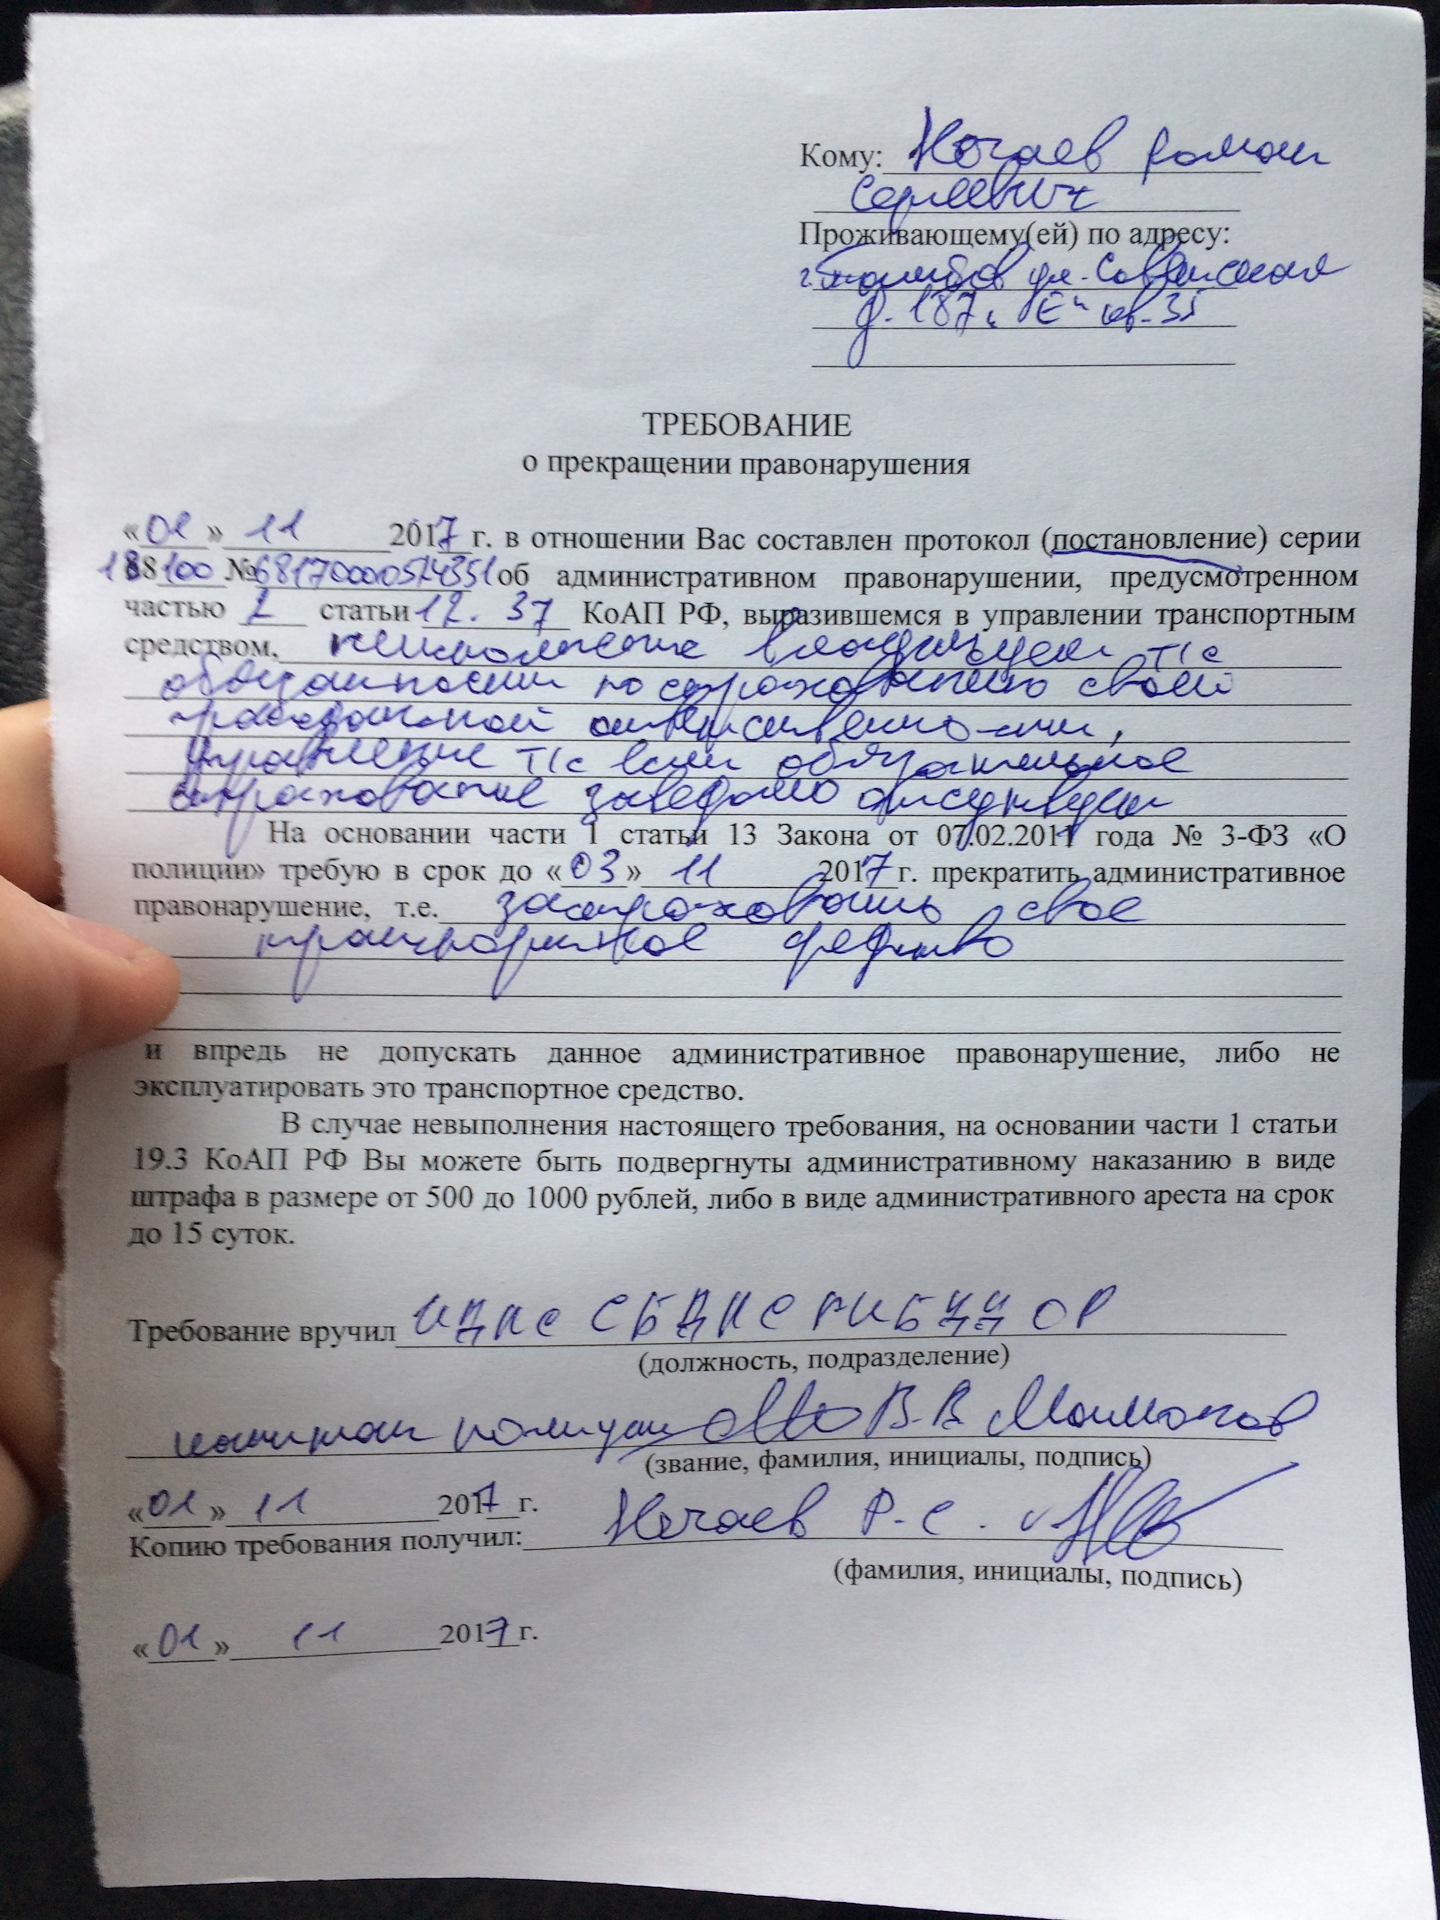 Кому: Нечаев Роман
Сергеевич
Проживающему(ей) по адресу:
г. Тамбов ул. Советская
д. 187 "Е" кв. 35
ТРЕБОВАНИЕ
о прекращении правонарушения
«01» 11 2017 г. в отношении Вас составлен протокол (постановление) серии
188100 № об административном правонарушении, предусмотренном
частью 2 статьи 12.37 КоАП РФ, выразившемся в управлении транспортным
средством, неисполнение владельцем т/с
обязанности по страхованию своей
гражданской ответственности,
управление т/с если обязательное
страхование заведомо отсутствует
На основании части 1 статьи 13 Закона от 07.02.2011 года № 3-ФЗ «О
полиции» требую в срок до «03» 11 2017 г. прекратить административное
правонарушение, т.е. застраховать свое
транспортное средство
и впредь не допускать данное административное правонарушение, либо не
эксплуатировать это транспортное средство.
В случае невыполнения настоящего требования, на основании части 1 статьи
19.3 КоАП РФ Вы можете быть подвергнуты административному наказанию в виде
штрафа в размере от 500 до 1000 рублей, либо в виде административного ареста на срок
до 15 суток.
Требование вручил ИДПС СБДПС ГИБДД ОР
(должность, подразделение)
капитан полиции В.В. Мамонов
(звание, фамилия, инициалы, подпись)
«01» 11 2017 г.
Копию требования получил: Нечаев Р.С.
(фамилия, инициалы, подпись)
«01» 11 2017 г.